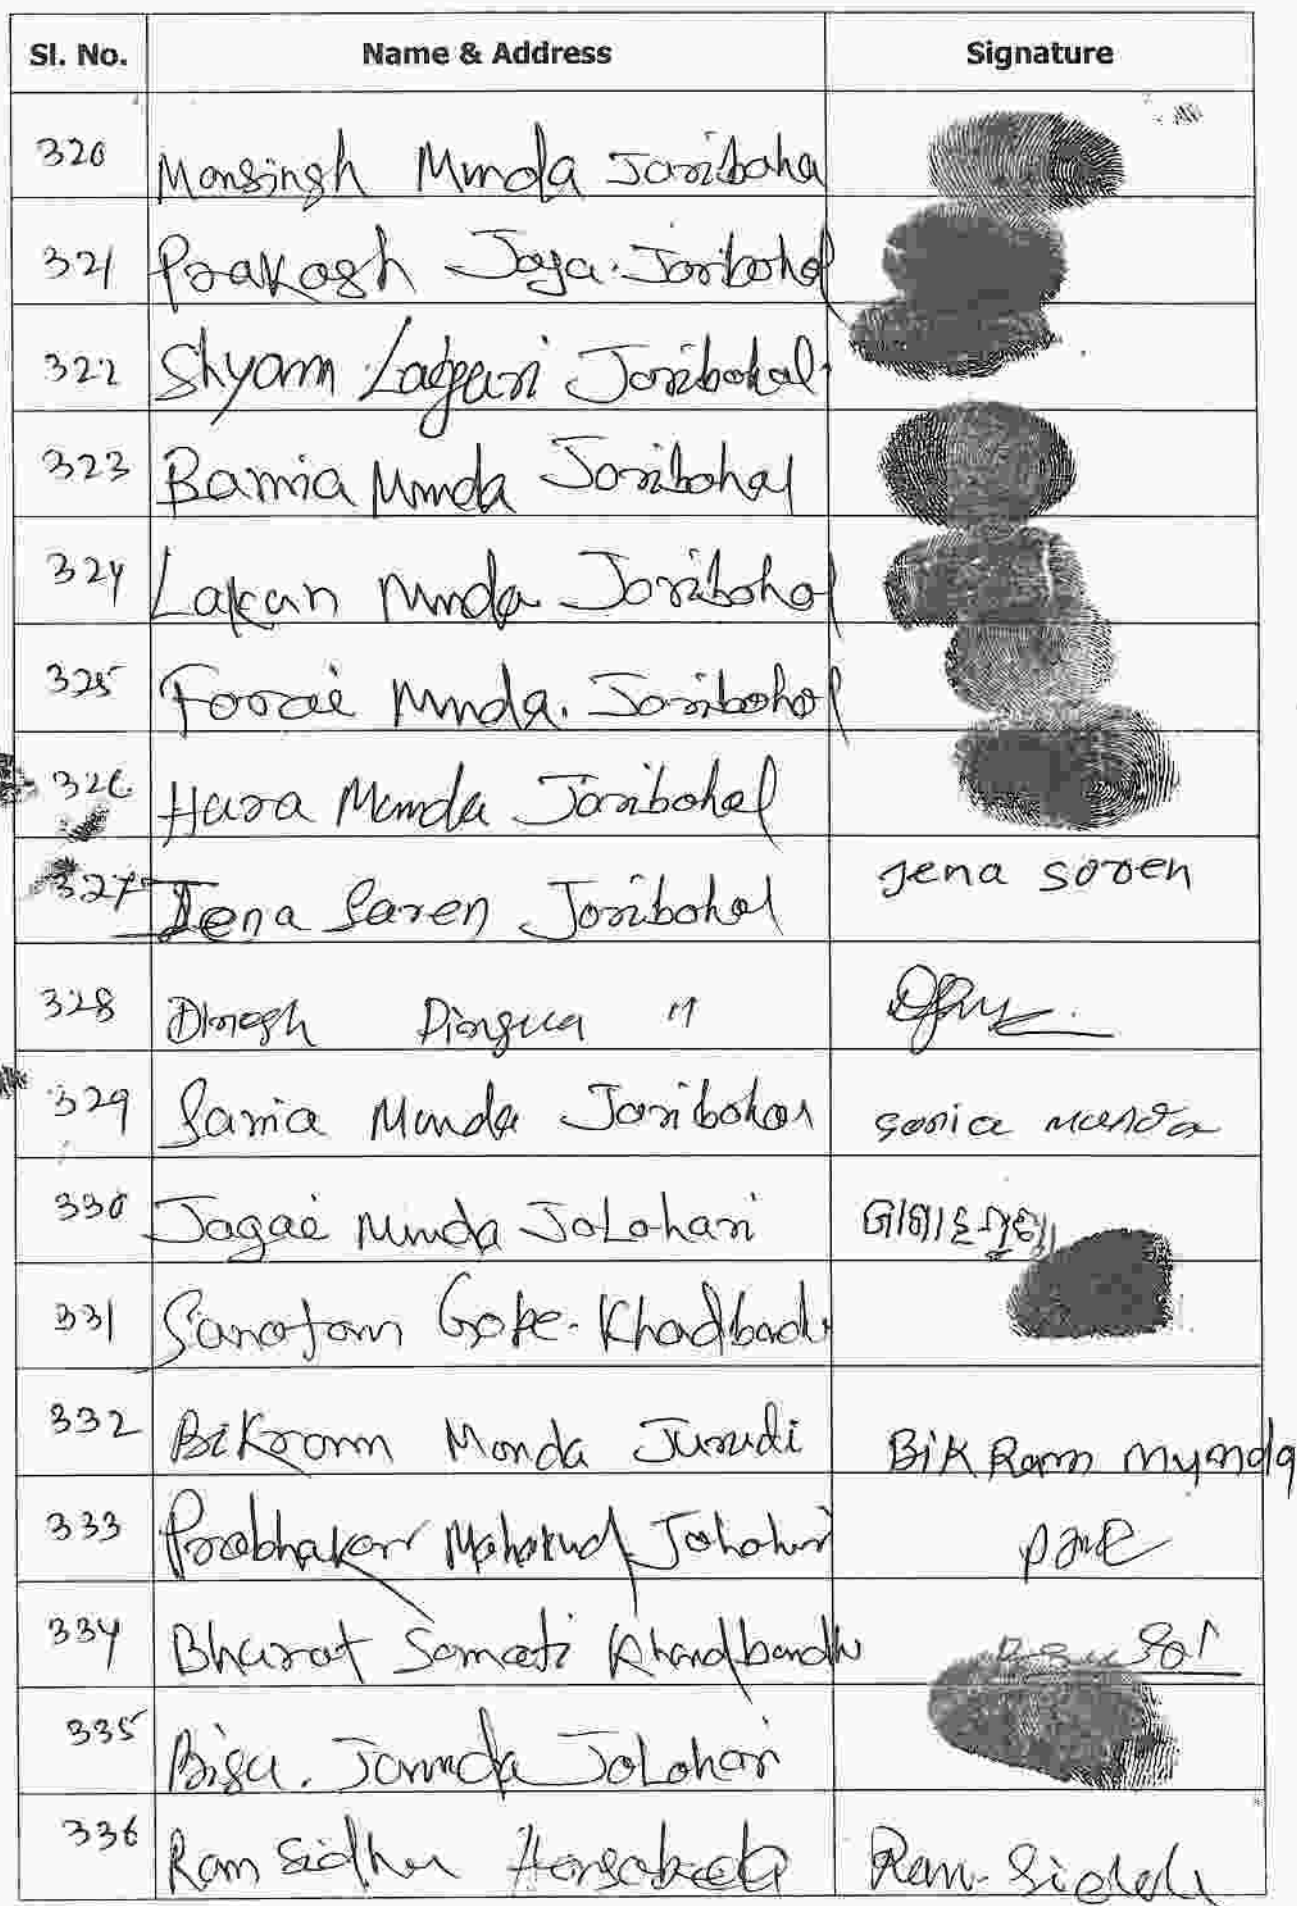 Sl. No. Name & Address Signature
320 Mansingh Munda Joribahal
321 Prakash Jaga. Joribohal
322 Shyam Laguri Joribohal
323 Bamia Munda Joribohal
324 Lakan Munda Joribohal
325 Foorai Munda. Joribohal
326 Hara Munda Joribohal
327 Jena Saren Joribohal Jena Soren
328 Dinesh Dingua "
329 Sania Munda Joribohal Sania Munda
330 Jagai Munda Jolohari ଜାଗାଇ ମୁଣ୍ଡା
331 Sanatan Gope. Khadbandh
332 Bikram Monda Jurudi BikRam Mynda
333 Prabhakar Mahakud Jolohari
334 Bharat Samati Khandbandh
335 Bisu. Jamuda Jolohari
336 Ram Sidhu Ram Sidhu